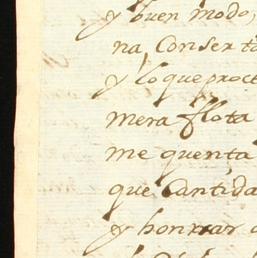 y buen modo,
na, Conserta
y lo que proce
mera flota
me quenta
que Cantida
y honrrar a